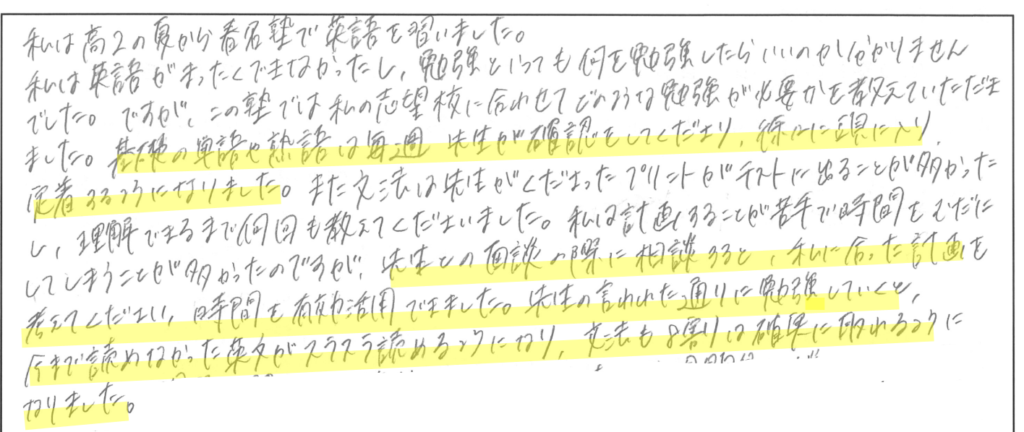 私は高2の夏から春名塾で英語を習いました。
私は英語がまったくできなかったし、勉強といっても何を勉強したらいいのか分かりません
でした。ですが、この塾では私の志望校に合わせてどのような勉強が必要かを教えていただき
ました。基礎の単語や熟語は毎週先生が確認をしてくださり、徐々に頭に入り
定着するようになりました。また文法は先生がくださったプリントがテストに出ることが多かった
し、理解できるまで何回も教えてくださいました。私は計画することが苦手で時間をむだに
してしまうことが多かったのですが、先生との面談の際に相談すると、私に合った計画を
考えてくださり、時間を有効活用できました。先生の言われた通りに勉強していくと、
今まで読めなかった英文がスラスラ読めるようになり、文法も8割りは確実に取れるように
なりました。